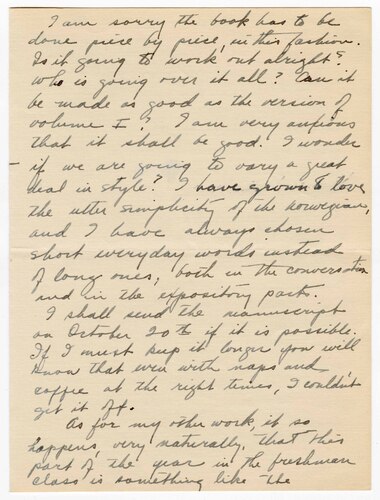 I am sorry the book has to be
done piece by piece, in this fashion.
Is it going to work out alright?
Who is going over it all? Can it
be made as good as the version of
volume I? I am very anxious
that it shall be good. I wonder
if we are going to vary a great
deal in style? I have grown to love
the utter simplicity of the norwegian,
and I have always chosen
short everyday words instead
of long ones, both in the conversation
and in the expository parts.
I shall send the manuscript
on October 20th if it is possible.
If I must keep it longer you will
know that even with naps and
coffee at the right times, I couldn't
get it off.
As for my other work, it so
happens, very naturally, that this
part of the year in the freshman
class is something like the